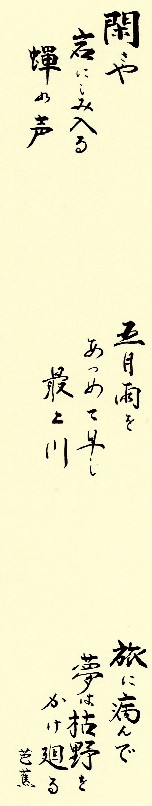 閑さや
岩にしみ入る
蝉の声
五月雨を
あつめて早し
最上川
旅に病んで
夢は枯野を
かけ廻る
芭蕉